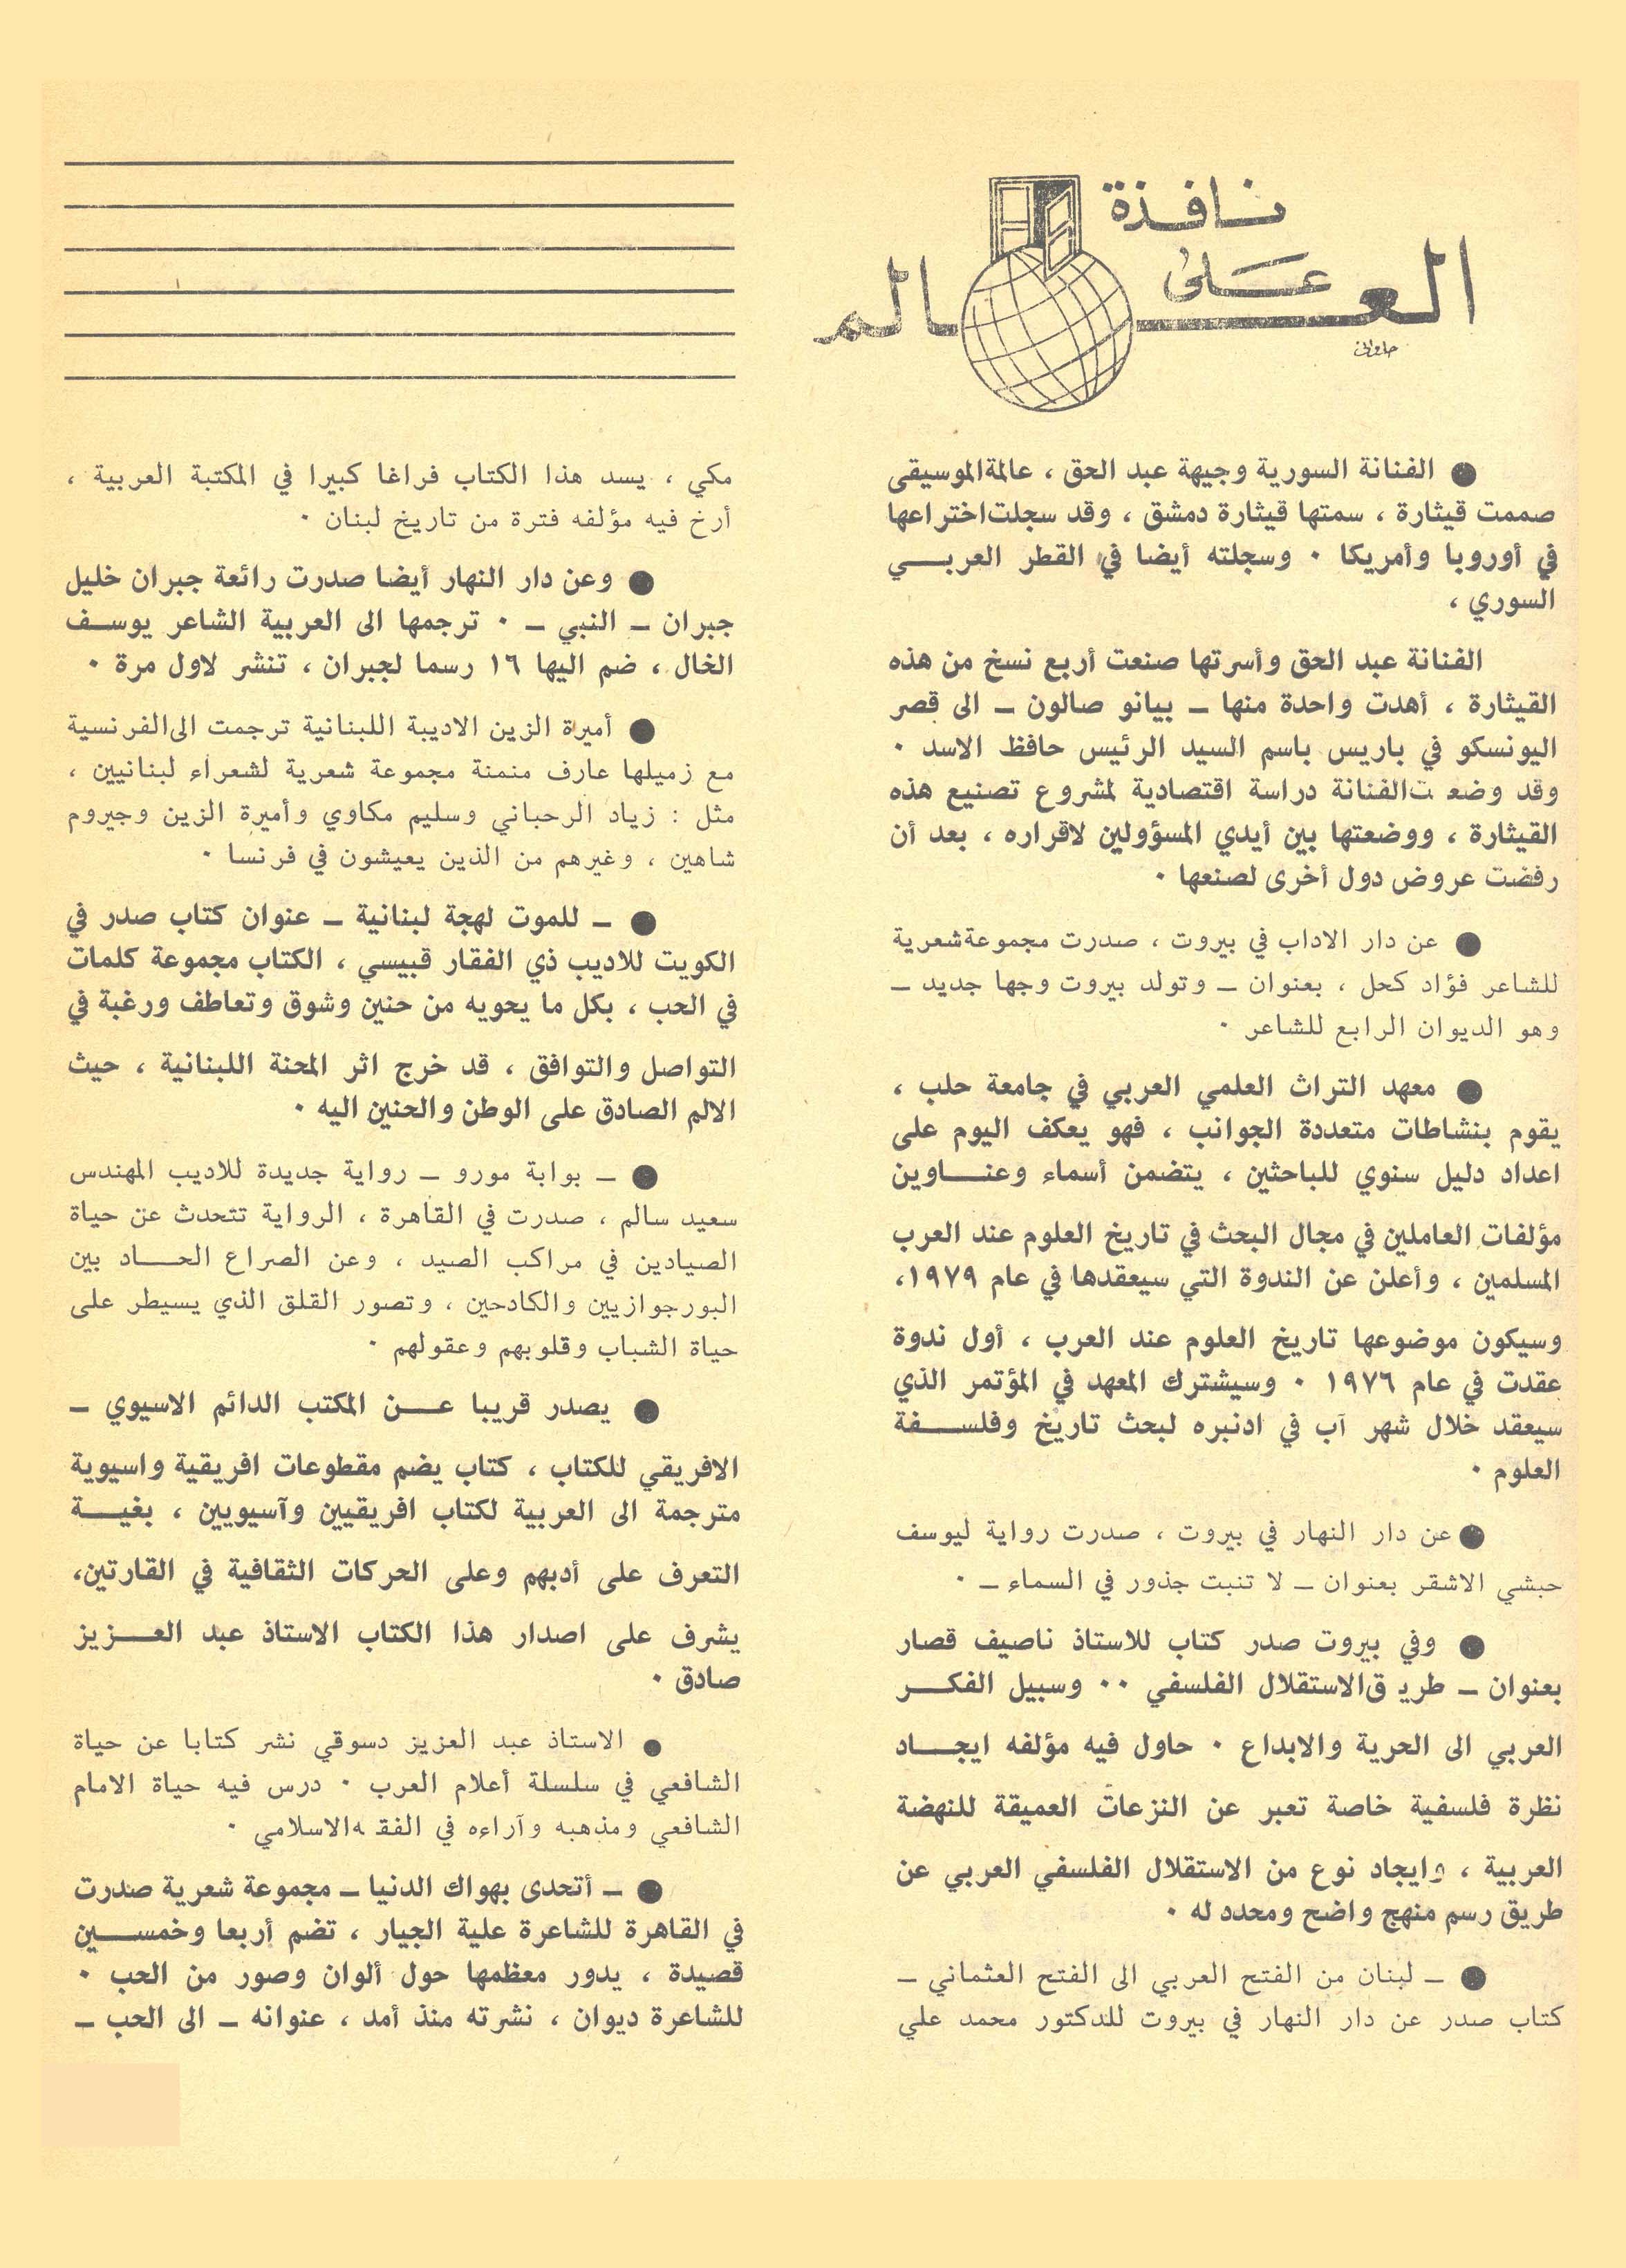 نافذة
على
العالم
● الفنانة السورية وجيهة عبد الحق ، عالمة الموسيقى
صممت قيثارة ، سمتها قيثارة دمشق ، وقد سجلت اختراعها
في أوروبا وأمريكا ٠ وسجلته أيضا في القطر العربي
السوري ،
الفنانة عبد الحق وأسرتها صنعت أربع نسخ من هذه
القيثارة ، أهدت واحدة منها ــ بيانو صالون ــ الى قصر
اليونسكو في باريس باسم السيد الرئيس حافظ الاسد ٠
وقد وضعت الفنانة دراسة اقتصادية لمشروع تصنيع هذه
القيثارة ، ووضعتها بين أيدي المسؤولين لاقراره ، بعد أن
رفضت عروض دول أخرى لصنعها ٠
● عن دار الاداب في بيروت ، صدرت مجموعة شعرية
للشاعر فؤاد كحل ، بعنوان ــ وتولد بيروت وجها جديد ــ
وهو الديوان الرابع للشاعر ٠
● معهد التراث العلمي العربي في جامعة حلب ،
يقوم بنشاطات متعددة الجوانب ، فهو يعكف اليوم على
اعداد دليل سنوي للباحثين ، يتضمن أسماء وعناوين
مؤلفات العاملين في مجال البحث في تاريخ العلوم عند العرب
المسلمين ، وأعلن عن الندوة التي سيعقدها في عام ١٩٧٩،
وسيكون موضوعها تاريخ العلوم عند العرب ، أول ندوة
عقدت في عام ١٩٧٦ ٠ وسيشترك المعهد في المؤتمر الذي
سيعقد خلال شهر آب في ادنبره لبحث تاريخ وفلسفة
العلوم ٠
● عن دار النهار في بيروت ، صدرت رواية ليوسف
حبشي الاشقر بعنوان ــ لا تنبت جذور في السماء ــ ٠
● وفي بيروت صدر كتاب للاستاذ ناصيف قصار
بعنوان ــ طريق الاستقلال الفلسفي ٠٠ وسبيل الفكر
العربي الى الحرية والابداع ٠ حاول فيه مؤلفه ايجاد
نظرة فلسفية خاصة تعبر عن النزعات العميقة للنهضة
العربية ، وايجاد نوع من الاستقلال الفلسفي العربي عن
طريق رسم منهج واضح ومحدد له ٠
● ــ لبنان من الفتح العربي الى الفتح العثماني ــ
كتاب صدر عن دار النهار في بيروت للدكتور محمد علي
مكي ، يسد هذا الكتاب فراغا كبيرا في المكتبة العربية ،
أرخ فيه مؤلفه فترة من تاريخ لبنان ٠
● وعن دار النهار أيضا صدرت رائعة جبران خليل
جبران ــ النبي ــ ٠ ترجمها الى العربية الشاعر يوسف
الخال ، ضم اليها ١٦ رسما لجبران ، تنشر لاول مرة ٠
● أميرة الزين الاديبة اللبنانية ترجمت الى الفرنسية
مع زميلها عارف منمنة مجموعة شعرية لشعراء لبنانيين ،
مثل : زياد الرحباني وسليم مكاوي وأميرة الزين وجيروم
شاهين ، وغيرهم من الذين يعيشون في فرنسا ٠
● ــ للموت لهجة لبنانية ــ عنوان كتاب صدر في
الكويت للاديب ذي الفقار قبيسي ، الكتاب مجموعة كلمات
في الحب ، بكل ما يحويه من حنين وشوق وتعاطف ورغبة في
التواصل والتوافق ، قد خرج اثر المحنة اللبنانية ، حيث
الالم الصادق على الوطن والحنين اليه ٠
● ــ بوابة مورو ــ رواية جديدة للاديب المهندس
سعيد سالم ، صدرت في القاهرة ، الرواية تتحدث عن حياة
الصيادين في مراكب الصيد ، وعن الصراع الحاد بين
البورجوازيين والكادحين ، وتصور القلق الذي يسيطر على
حياة الشباب وقلوبهم وعقولهم ٠
● يصدر قريبا عن المكتب الدائم الاسيوي ــ
الافريقي للكتاب ، كتاب يضم مقطوعات افريقية واسيوية
مترجمة الى العربية لكتاب افريقيين وآسيويين ، بغية
التعرف على أدبهم وعلى الحركات الثقافية في القارتين،
يشرف على اصدار هذا الكتاب الاستاذ عبد العزيز
صادق ٠
● الاستاذ عبد العزيز دسوقي نشر كتابا عن حياة
الشافعي في سلسلة أعلام العرب ٠ درس فيه حياة الامام
الشافعي ومذهبه وآراءه في الفقه الاسلامي ٠
● ــ أتحدى بهواك الدنيا ــ مجموعة شعرية صدرت
في القاهرة للشاعرة علية الجيار ، تضم أربعا وخمسين
قصيدة ، يدور معظمها حول ألوان وصور من الحب ٠
للشاعرة ديوان ، نشرته منذ أمد ، عنوانه ــ الى الحب ــ